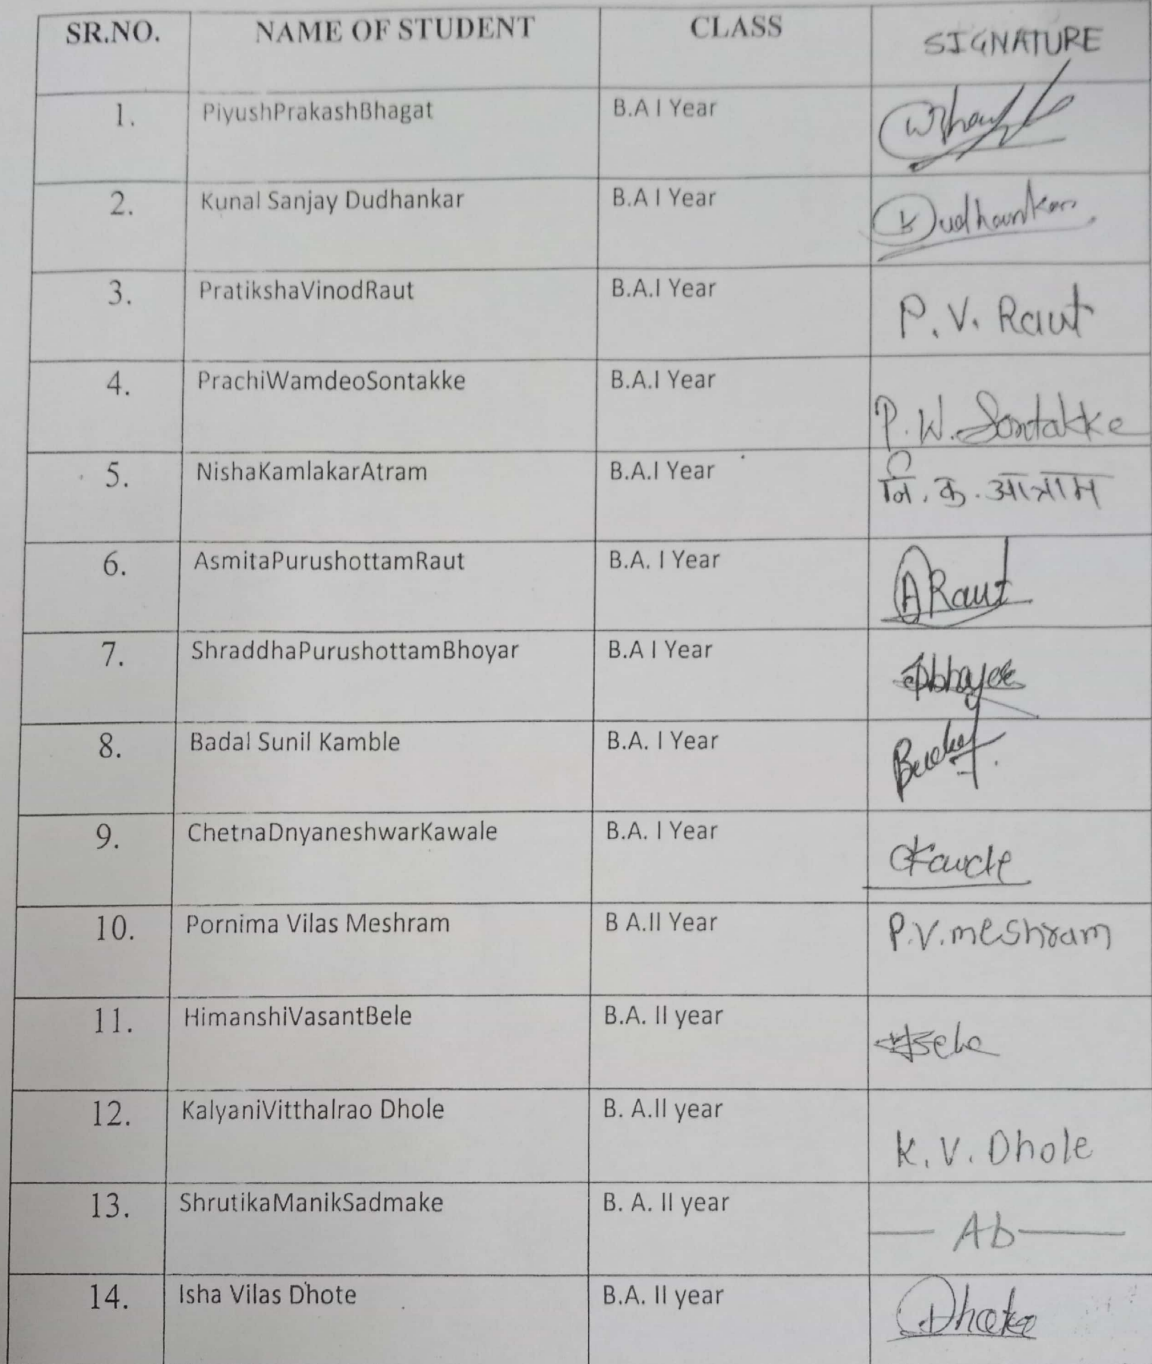 SR.NO. NAME OF STUDENT CLASS SIGNATURE
1. PiyushPrakashBhagat B.A I Year
2. Kunal Sanjay Dudhankar B.A I Year Dudhankar
3. PratikshaVinodRaut B.A.I Year P. V. Raut
4. PrachiWamdeoSontakke B.A.I Year P. W. Sontakke
5. NishaKamlakarAtram B.A.I Year नि. क. आत्राम
6. AsmitaPurushottamRaut B.A. I Year A Raut
7. ShraddhaPurushottamBhoyar B.A I Year
8. Badal Sunil Kamble B.A. I Year
9. ChetnaDnyaneshwarKawale B.A. I Year
10. Pornima Vilas Meshram B A.II Year P.V.meshram
11. HimanshiVasantBele B.A. II year
12. KalyaniVitthalrao Dhole B. A.II year K. V. Dhole
13. ShrutikaManikSadmake B. A. II year — Ab —
14. Isha Vilas Dhote B.A. II year